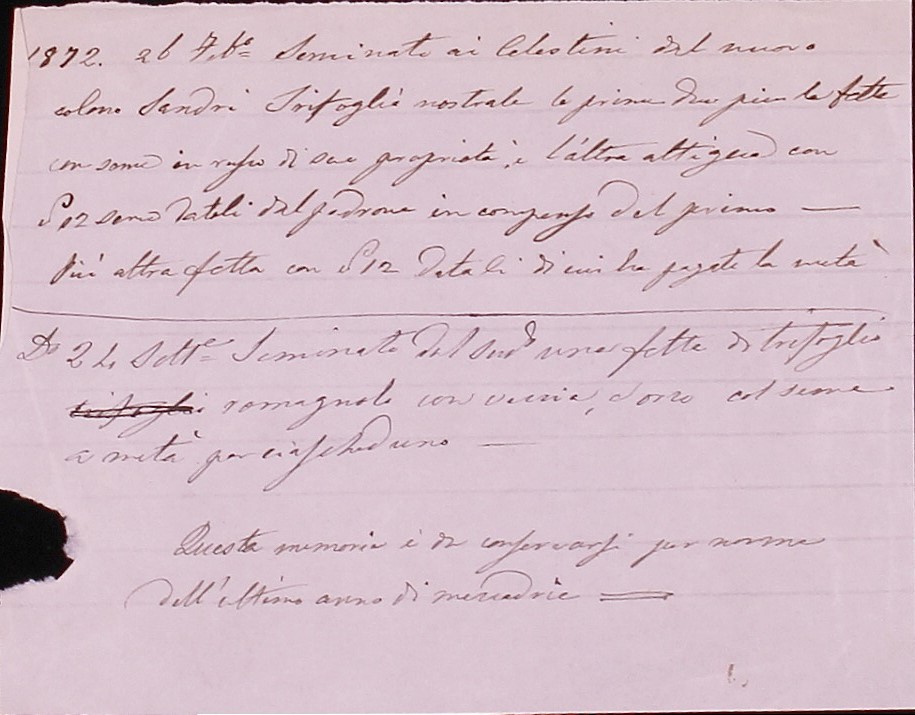 1872. 26 Feb.º Seminato ai Celestini dal nuovo
colono Sandri Trifoglio nostrale le prime due piccole fette
con seme in  di sua proprietà, e l'altra attigua con
12 seme datoli dal padrone in compenso del primo —
Più altra fetta con 12 datoli di cui ha pagato la metà
Dº 24 Sett.e Seminato dal sudº una fetta di trifoglio
trifoglio romagnolo con veccia, d'orzo col seme
a metà per ciascheduno —
Questa memoria è da conservarsi per norma
dell'ultimo anno di mezzadria =